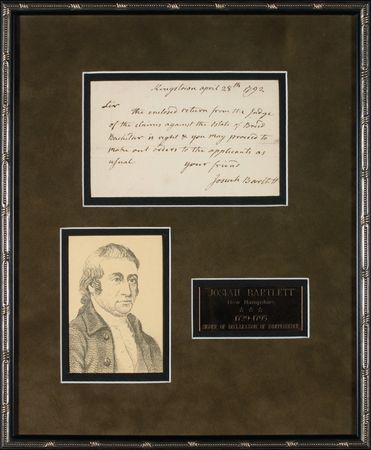 Kingstown april 28th 1792
Sir
the enclosed return from the Judge
of the claims against the Estate of
Bachelder is right & you may proceed to
make out orders to the applicants as
usual. your friend
Josiah Bartlett
JOSIAH BARTLETT
New Hampshire
1729-1795
SIGNER OF DECLARATION OF INDEPENDENCE